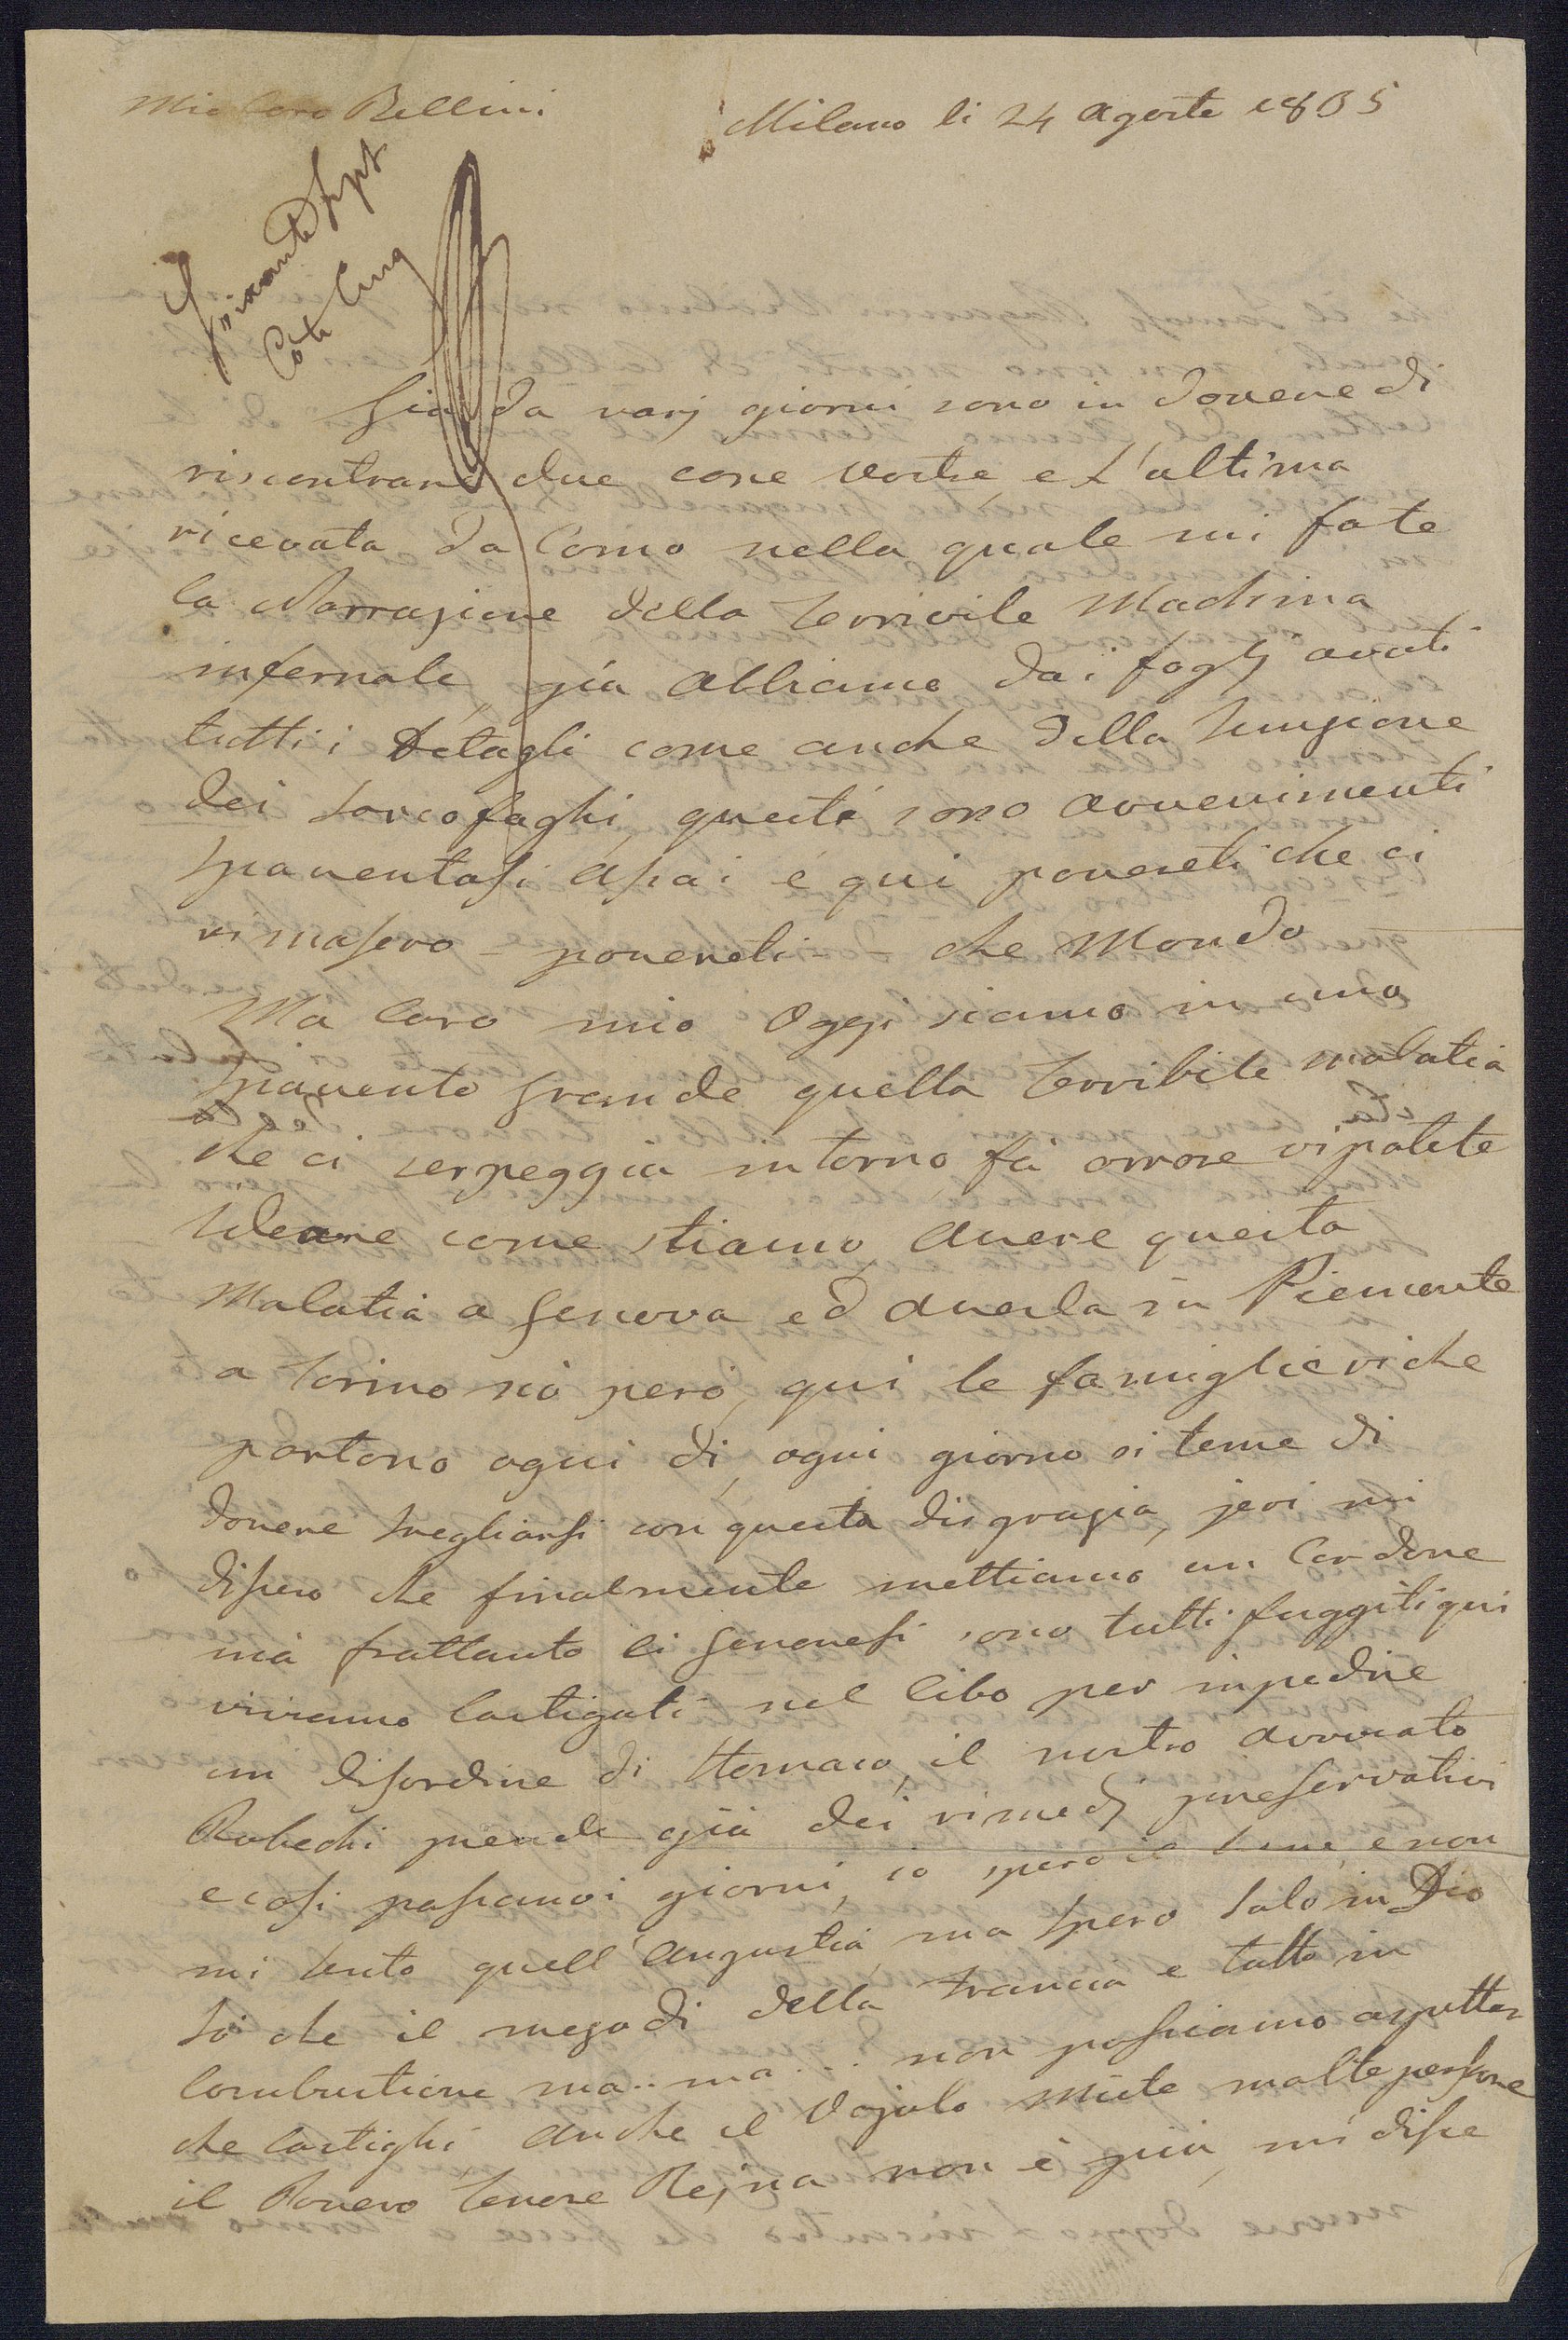 Mio Caro Bellini
Milano li 24 agosto 1835
Già da varj giorni sono in dovere di
riscontrare due care vostre, e l'ultima
ricevata da Como nella quale mi fate
la Narrazione della terrivile Machina
infernale, già abbiamo dai foglj avuti
tutti i detagli come anche della funzione
dei sarcofaghi, questi sono avvenimenti
spaventosi assai e qui povereti che ci
rimasero - povereti - che Mondo
Ma Caro mio Oggi siamo in uno
spavento grande quella terribile malatia
che ci serpeggia intorno, fà orrore vi potete
Ideare come stiamo, avere questa
Malatia a Genova ed averla in Piemonte
a Torino nò però, qui le famiglie riche
partono ogni dì, ogni giorno si teme di
dovere svegliarsi con questa disgrazia, jeri mi
dissero che finalmente mettiamo un Cordone
mà frattanto li Genovesi sono tutti fuggiti qui
viviamo Castigati nel Cibo per inpedire
un disordine di Stomaco, il nostro avvocato
Robechi prende già dei rimedj preservativi
e così passiamo i giorni, io spero e non
mi sento quell'angustia, ma spero solo in Dio
sò che il mezodì della Francia e tutto in
Combustione ma.. ma... non possiamo aspettar
che Castighi anche il Vajolo miete molte persone
il Povero tenore Rejna non è più, mi disse